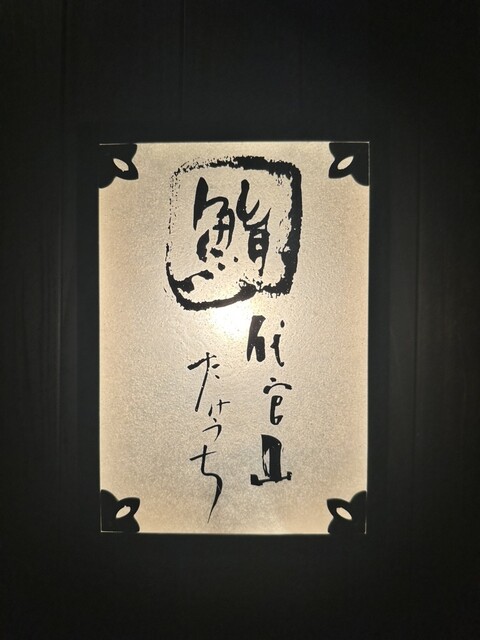 鮨
代官山
たけうち